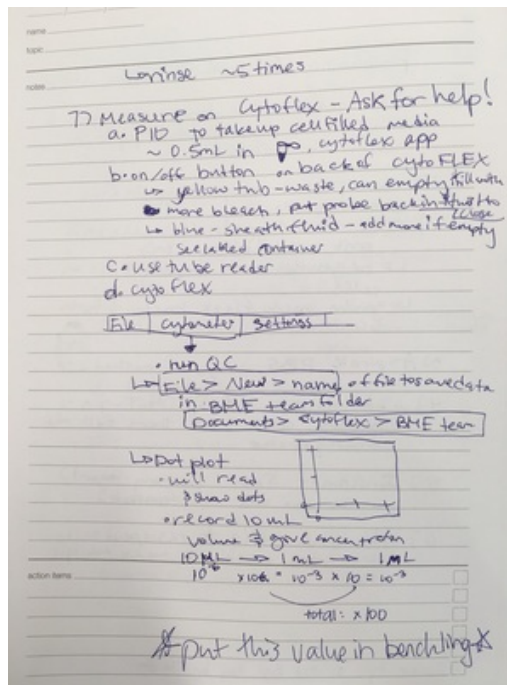 name
topic
notes
↳ rinse ~5 times
7) Measure on Cytoflex - Ask for help!
a. PID to takeup cell filled media
~ 0.5mL in , cytoflex app
b. on/off button on back of cytoFLEX
↳ yellow tub - waste, can empty fill with
more bleach, put probe back in twist to close
↳ blue - sheath fluid - add more if empty
see labled container
c. use tube reader
d. cytoFlex
File | cytometer | settings
• run QC
↳ File > New > name of file to save data
in BME team folder
Documents > cytoflex > BME team
↳ Dot plot
• will read
& show dots
• record 10 mL
volume & give concentration
10ML → 1mL → 1ML
10⁻⁶ 10⁻³ × 10 = 10⁻³
total: x100
action items
☆ put this value in benchling ☆